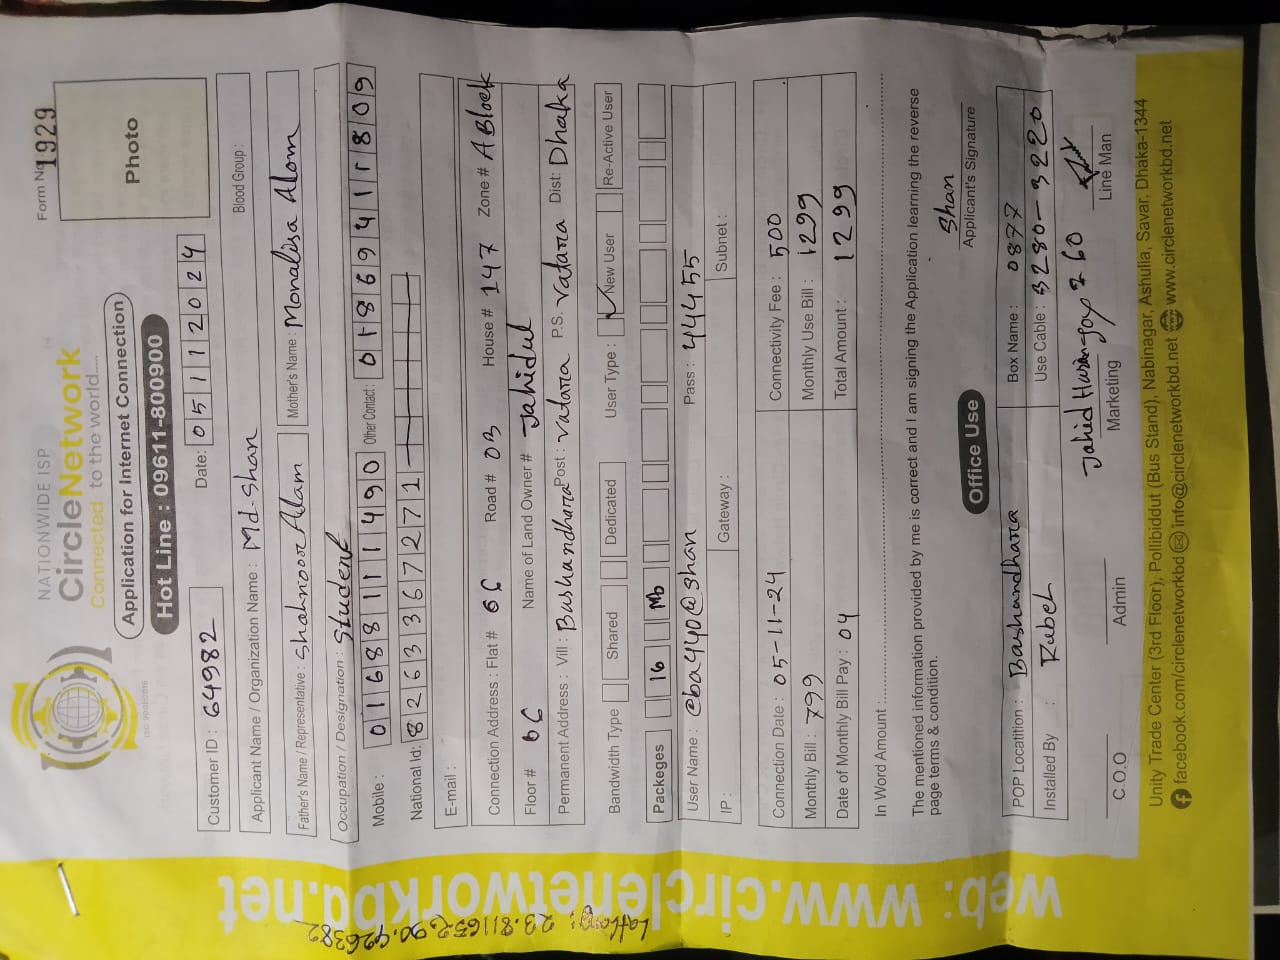 NATIONWIDE ISP
CircleNetwork
Connected to the world....
Form No 1929
Application for Internet Connection
Hot Line : 09611-800900
Photo
ISO 9001:2015
Customer ID : 64982 Date: 05112024
Applicant Name / Organization Name : Md-Shan Blood Group :
Father's Name / Representative : Shahnoor Alam Mother's Name : Monalisa Alom
Occupation / Designation : Student
Mobile : 01688111490 Other Contact: 01869411809
National Id: 8263367271
E-mail :
Connection Address : Flat # 6C Road # 03 House # 147 Zone # A Block
Floor # 6C Name of Land Owner # Jahidul
Permanent Address : Vill : Bashundhara Post : vatara P.S. vatara Dist: Dhaka
Bandwidth Type Shared Dedicated User Type : ✓ New User Re-Active User
Packeges 16 Mb
User Name : @ba440@shan Pass : 44455
IP : Gateway : Subnet :
Connection Date : 05-11-24 Connectivity Fee : 500
Monthly Bill : 799 Monthly Use Bill : 1299
Date of Monthly Bill Pay : 04 Total Amount : 1299
In Word Amount :
The mentioned information provided by me is correct and I am signing the Application learning the reverse
page terms & condition.
Shan
Applicant's Signature
Office Use
POP Locatition : Bashundhara Box Name : 0877
Installed By : Rubel Use Cable : 3280-3220
Jahid Hasan 60
C.O.O Admin Marketing Line Man
Unity Trade Center (3rd Floor), Pollibiddut (Bus Stand), Nabinagar, Ashulia, Savar, Dhaka-1344
facebook.com/circlenetworkbd info@circlenetworkbd.net www.circlenetworkbd.net
web: www.circlenetworkbd.net
23.811652,90.426382